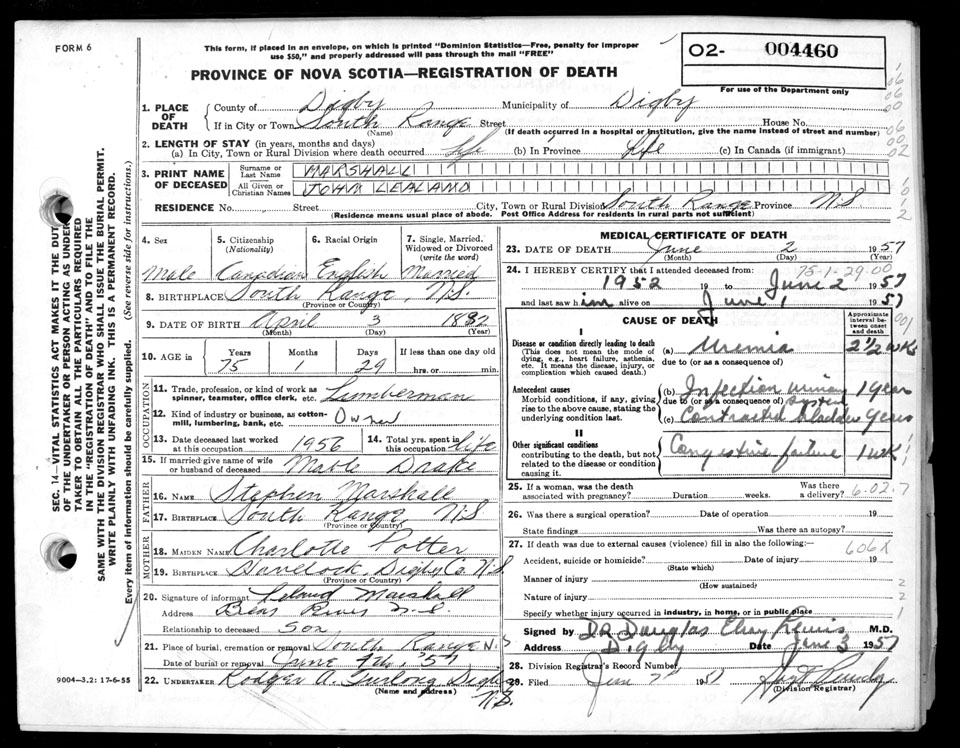 FORM 6
This form, if placed in an envelope, on which is printed "Dominion Statistics—Free, penalty for improper
use $50," and properly addressed will pass through the mail "FREE"
PROVINCE OF NOVA SCOTIA—REGISTRATION OF DEATH
02- 004460
For use of the Department only
SEC. 14—VITAL STATISTICS ACT MAKES IT THE DUTY
OF THE UNDERTAKER OR PERSON ACTING AS UNDER-
TAKER TO OBTAIN ALL THE PARTICULARS REQUIRED
IN THE "REGISTRATION OF DEATH" AND TO FILE THE
SAME WITH THE DIVISION REGISTRAR WHO SHALL ISSUE THE BURIAL PERMIT.
WRITE PLAINLY WITH UNFADING INK. THIS IS A PERMANENT RECORD.
Every item of information should be carefully supplied. (See reverse side for instructions.)
1. PLACE OF DEATH
County of Digby Municipality of Digby
If in City or Town South Range Street House No.
(Name) (If death occurred in a hospital or institution, give the name instead of street and number)
2. LENGTH OF STAY (in years, months and days)
(a) In City, Town or Rural Division where death occurred life (b) In Province life (c) In Canada (if immigrant)
3. PRINT NAME OF DECEASED
Surname or Last Name MARSHALL
All Given or Christian Names JOHN LEALAND
RESIDENCE No. Street City, Town or Rural Division South Range Province N.S
(Residence means usual place of abode. Post Office Address for residents in rural parts not sufficient)
4. Sex 5. Citizenship (Nationality) 6. Racial Origin 7. Single, Married, Widowed or Divorced (write the word)
Male Canadian English Married
8. BIRTHPLACE South Range, N.S.
(Province or Country)
9. DATE OF BIRTH April 3 1882
(Month) (Day) (Year)
10. AGE in Years Months Days If less than one day
75 1 29 hrs. or min.
OCCUPATION
11. Trade, profession, or kind of work as spinner, teamster, office clerk, etc. Lumberman
12. Kind of industry or business, as cotton-mill, lumbering, bank, etc. Owner
13. Date deceased last worked at this occupation 1956 14. Total yrs. spent in this occupation life
15. If married give name of wife or husband of deceased Mable Drake
FATHER
16. NAME Stephen Marshall
17. BIRTHPLACE South Range N.S
(Province or Country)
MOTHER
18. MAIDEN NAME Charlotte Potter
19. BIRTHPLACE Havelock, Digby Co. N.S
(Province or Country)
20. Signature of informant Leland Marshall
Address Bear River N.S.
Relationship to deceased Son
21. Place of burial, cremation or removal South Range N.S
Date of burial or removal June 4th, '57
22. UNDERTAKER Rodger A. Furlong Digby
(Name and address) N.S.
9004—3.2: 17-6-55
MEDICAL CERTIFICATE OF DEATH
23. DATE OF DEATH June 2 1957
(Month) (Day)
75-1-29.00
24. I HEREBY CERTIFY that I attended deceased from:
1952 19 to June 2 1957
and last saw him alive on June 1 1957
CAUSE OF DEATH
Approximate interval between onset and death
I
Disease or condition directly leading to death (a) Uremia 2 1/2 wks
(This does not mean the mode of dying, e.g., heart failure, asthenia, etc. It means the disease, injury, or complication which caused death.)
due to (or as a consequence of)
Antecedent causes (b) Infection urinary system 1 year
Morbid conditions, if any, giving rise to the above cause, stating the underlying condition last.
due to (or as a consequence of)
(c) Contracted bladder years
II
Other significant conditions Congestive failure 1 wk
contributing to the death, but not related to the disease or condition causing it.
25. If a woman, was the death associated with pregnancy? Duration weeks. Was there a delivery? 6-02.7
26. Was there a surgical operation? Date of operation 19
State findings Was there an autopsy?
27. If death was due to external causes (violence) fill in also the following:— 606X
Accident, suicide or homicide? Date of injury 19
(State which)
Manner of injury 2
(How sustained)
Nature of injury 2
Specify whether injury occurred in industry, in home, or in public place 1
Signed by Dr Douglas Lewis M.D.
Address Digby Date June 3 1957
28. Division Registrar's Record Number
29. Filed June 7 1957
(Division Registrar)